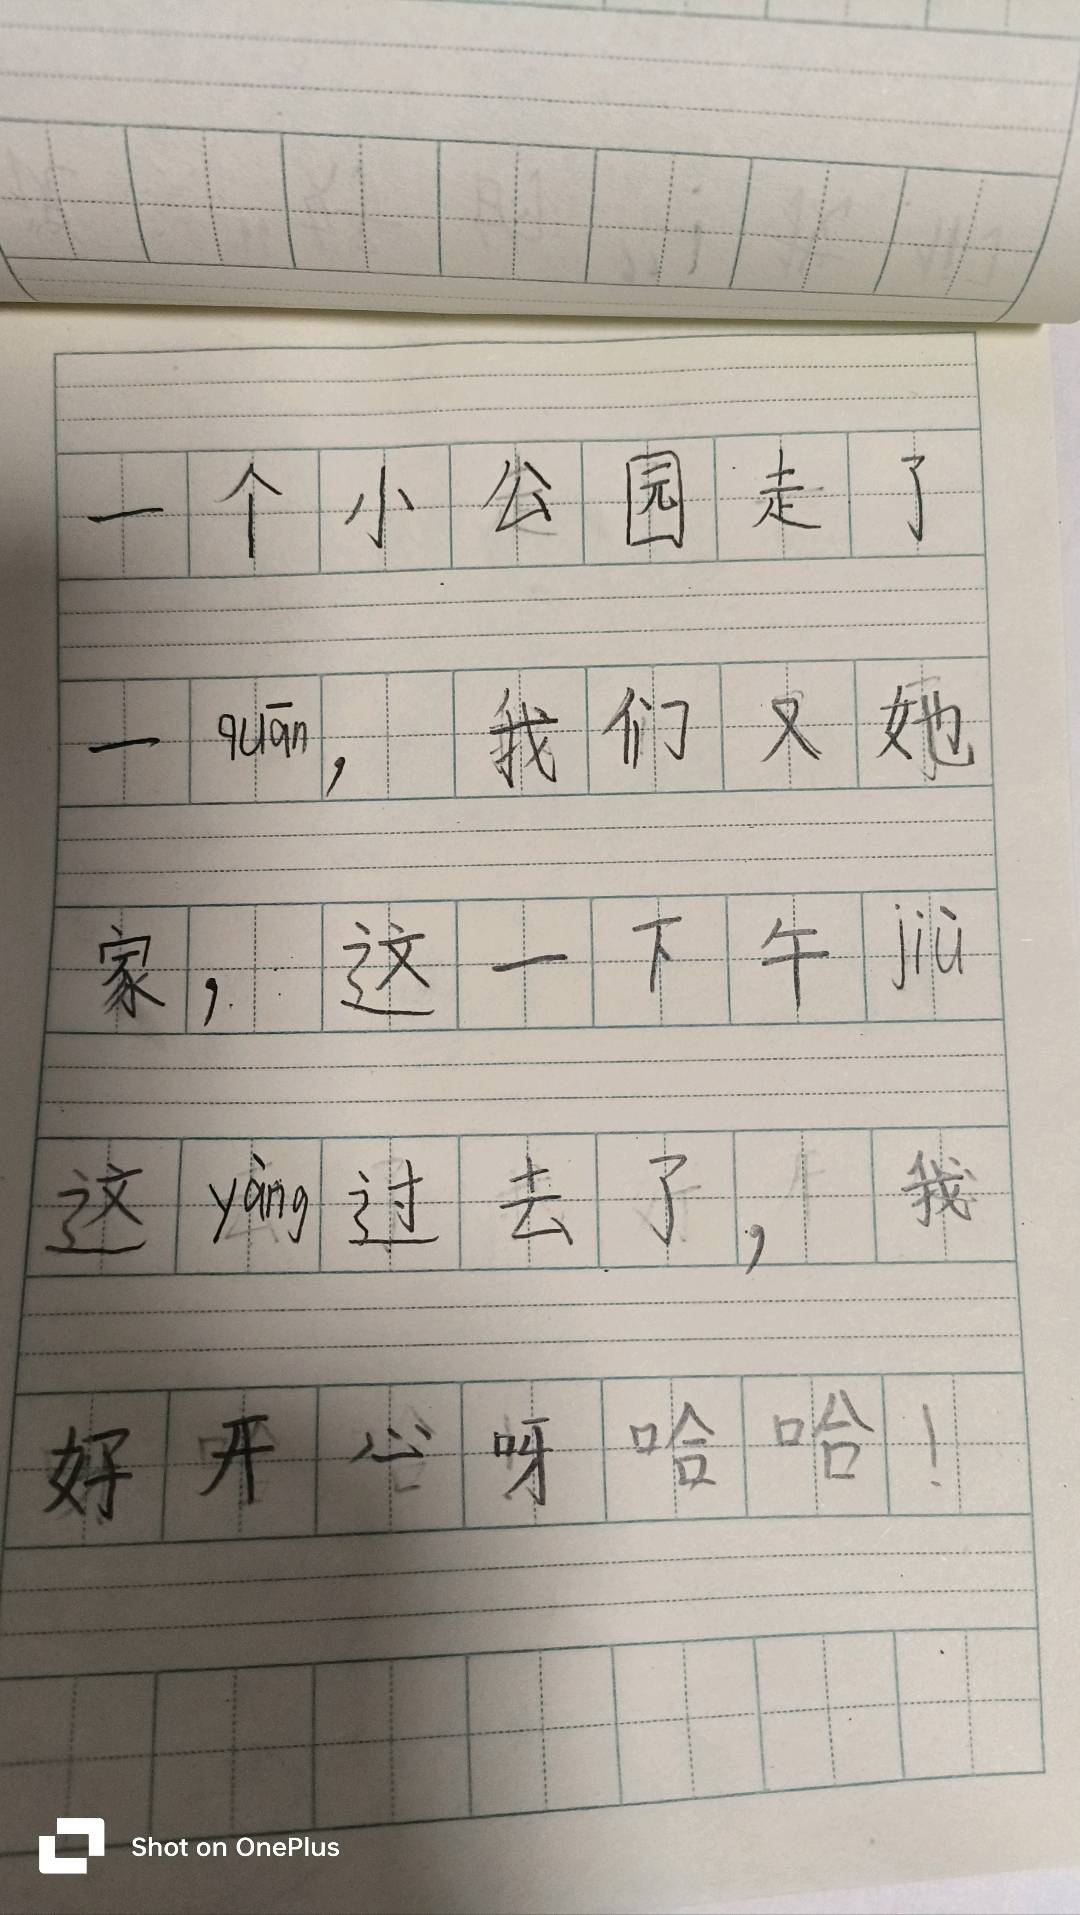 一个小公园走了
一quān，我们又她
家，这一下午jiù
这yàng过去了，我
好开心呀哈哈！
Shot on OnePlus